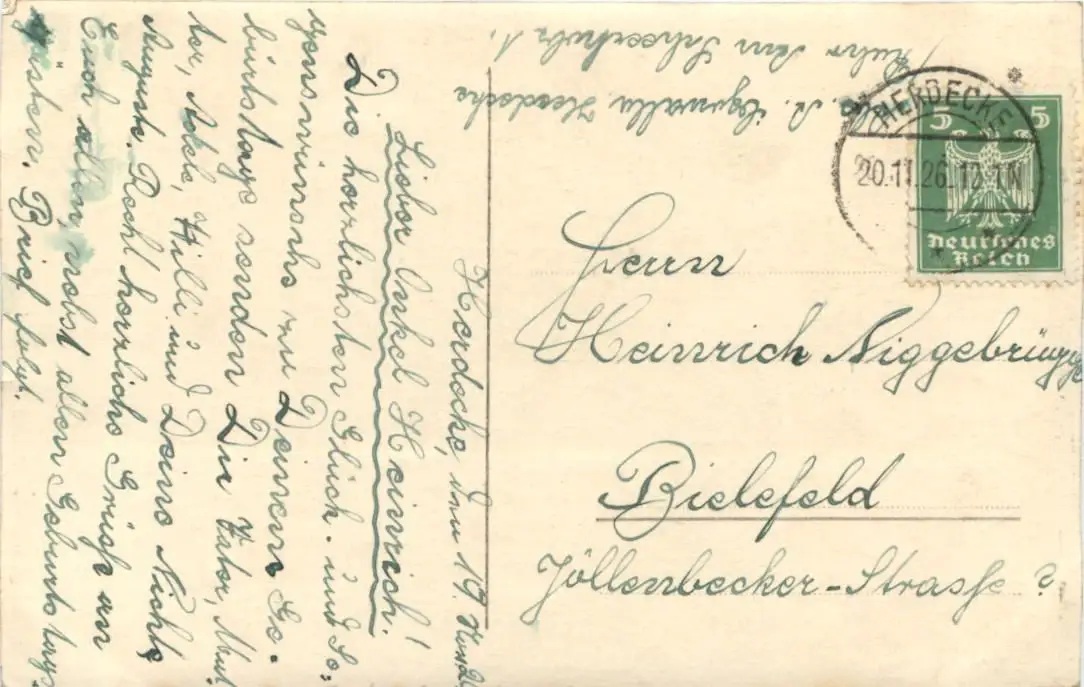 Herdecke, den 19. Nov. 26
Lieber Onkel Heinrich!
Die herzlichsten Glück- und Se-
genswünsche zu Deinem Ge-
burtstage senden Dir Vater, Mut-
ter, Adele, Willi und Deine Nichte
Auguste. Recht herzliche Grüße an
Euch allen, nebst allen Geburtstags-
gästen. Brief folgt.
Herdecke
Ruhr
HERDECKE
20.11.26. 12-1N
5 5
Deutsches
Reich
Herrn
Heinrich Niggebrügge
Bielefeld
Jöllenbecker-Strasse ?